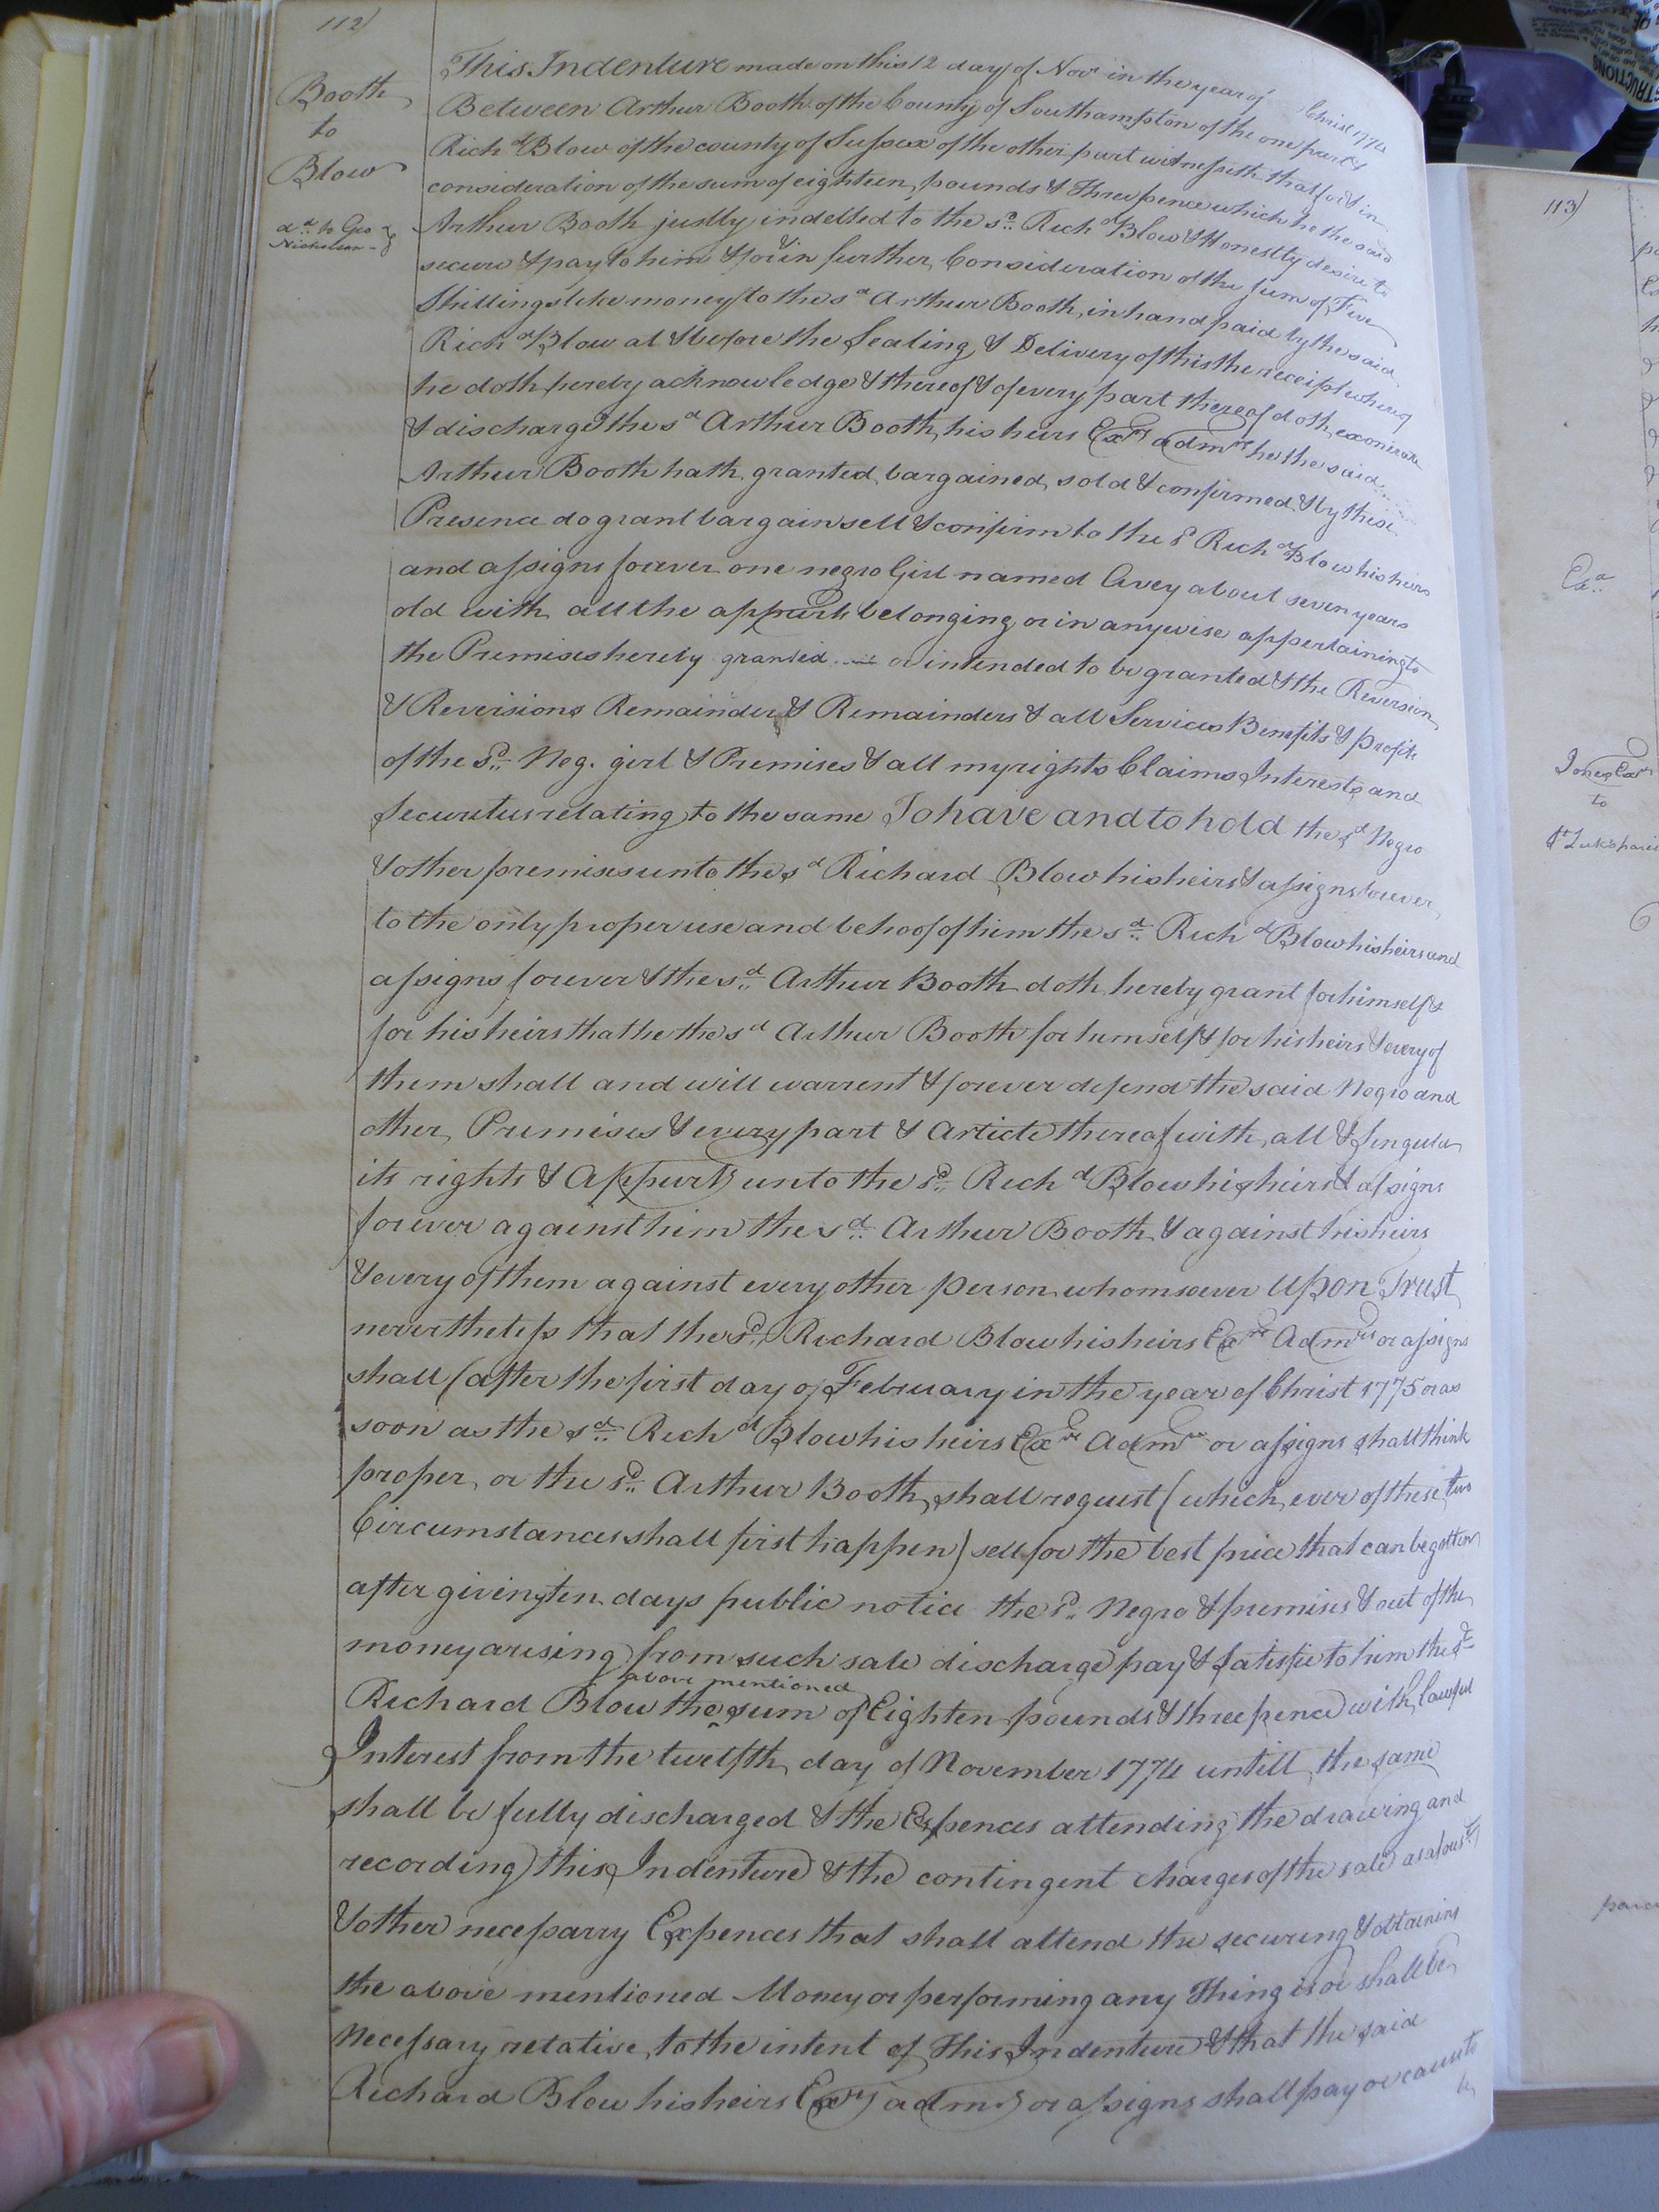 112)
Booth
to
Blow
dd. to Geo
Nicholson
This Indenture made on this 12 day of Novr in the year of Christ 1774
Between Arthur Booth of the County of Southampton of the one part &
Richd Blow of the county of Sussex of the other part witnesseth that for & in
consideration of the sum of eighteen pounds & Three pence which he the said
Arthur Booth justly indebted to the sd. Richd Blow & Honestly desire to
secure & pay to him & for & in further Consideration of the sum of Five
Shillings like money to the sd Arthur Booth in hand paid by the said
Richd Blow at & before the Sealing & Delivery of this the receipt whereof
he doth hereby acknowledge & thereof & of every part thereof doth exonerate
& discharge the sd Arthur Booth, his heirs Exrs admrs he the said
Arthur Booth hath granted, bargained, sold & confirmed & by these
Presence do grant bargain sell & confirm to the sd Richd Blow his heirs
and assigns forever one negro Girl named Avey about seven years
old with all the appurts belonging or in anywise appertaining to
the Premises hereby granted or intended to be granted & the Reversion
& Reversions Remainder & Remainders & all Services Benefits & profits
of the sd. Neg. girl & Premises & all my rights Claims Interests and
Securetus relating to the same To have and to hold the sd Negro
& other premises unto the sd Richard Blow his heirs & assigns forever
to the only proper use and behoof of him the sd. Richd Blow his heirs and
assigns forever & the sd. Arthur Booth doth hereby grant for himself &
for his heirs that he the sd Arthur Booth for himself & for his heirs & every of
them shall and will warrent & forever defend the said Negro and
other Premises & every part & Article thereof with all & Singular
its rights & Appurts unto the sd. Richd Blow his heirs & assigns
forever against him the sd. Arthur Booth & against his heirs
& every of them against every other person whomsoever Upon Trust
nevertheless that the sd. Richard Blow his heirs Exrs Admrs or assigns
shall (after the first day of February in the year of Christ 1775 or as
soon as the sd. Richd Blow his heirs Exrs Admrs or assigns shall think
proper, or the sd. Arthur Booth, shall request (which ever of these two
Circumstances shall first happen) sell for the best price that can be gotten
after giving ten days public notice the sd. Negro & premises & out of the
money arising from such sale discharge pay & satisfie to him the sd.
above mentioned
Richard Blow the sum of Eighten pounds & three pence with lawful
Interest from the twelfth day of November 1774 untill the same
shall be fully discharged & the Expences attending the drawing and
recording this Indenture & the contingent charges of the sale
& other necessarry Expences that shall attend the securing & obtaining
the above mentioned Money or performing any Thing is or shall be
Necessary relative to the intent of This Indenture & that the said
Richard Blow his heirs Exrs admrs or assigns shall pay or cause to
be
113)
Exd.
Jones Exrs
to